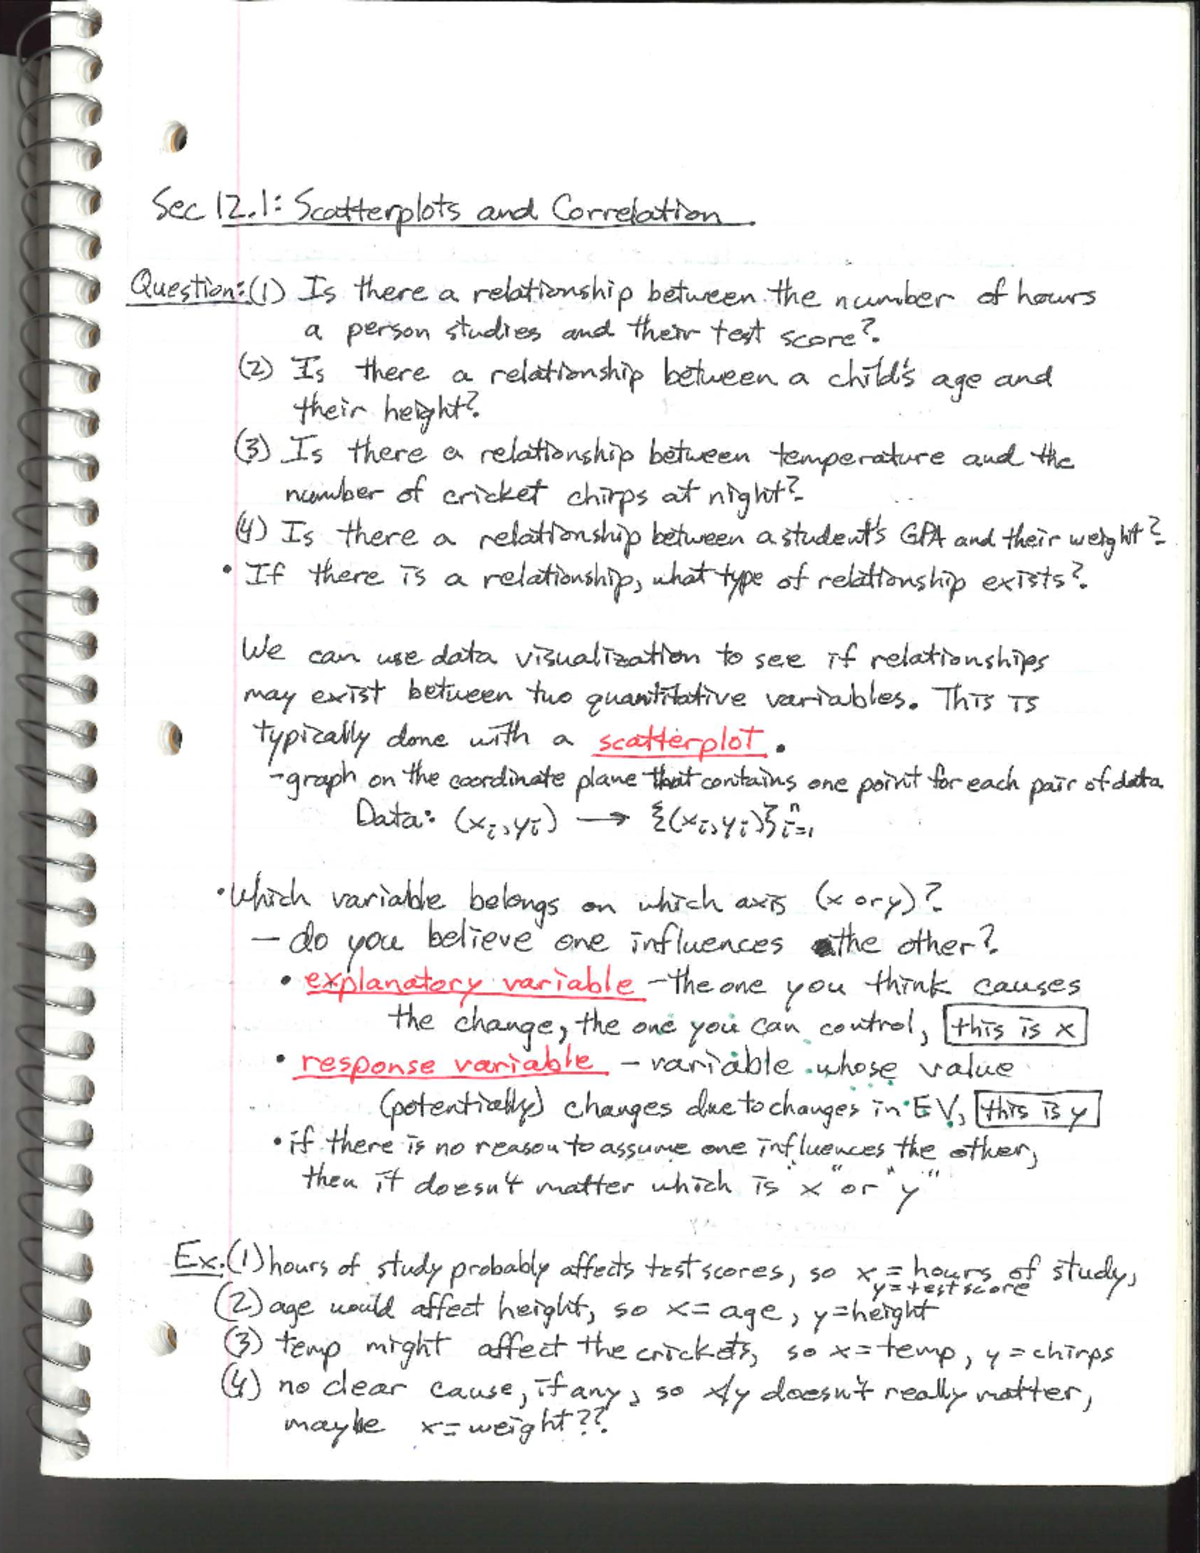 Sec 12.1: Scatterplots and Correlation
Question: (1) Is there a relationship between the number of hours
a person studies and their test score?
(2) Is there a relationship between a child's age and
their height?
(3) Is there a relationship between temperature and the
number of cricket chirps at night?
(4) Is there a relationship between a student's GPA and their weight?
• If there is a relationship, what type of relationship exists?
We can use data visualization to see if relationships
may exist between two quantitative variables. This is
typically done with a scatterplot.
-graph on the coordinate plane that contains one point for each pair of data
Data: (xᵢ, yᵢ) → {(xᵢ, yᵢ)}ⁿᵢ₌₁
• Which variable belongs on which axis (x or y)?
- do you believe one influences the other?
• explanatory variable - the one you think causes
the change, the one you can control, this is x
• response variable - variable whose value
(potentially) changes due to changes in EV, this is y
• if there is no reason to assume one influences the other,
then it doesn't matter which is "x" or "y"
Ex. (1) hours of study probably affects test scores, so x = hours of study,
y = test score
(2) age would affect height, so x = age, y = height
(3) temp might affect the crickets, so x = temp, y = chirps
(4) no clear cause, if any, so x/y doesn't really matter,
maybe x = weight??